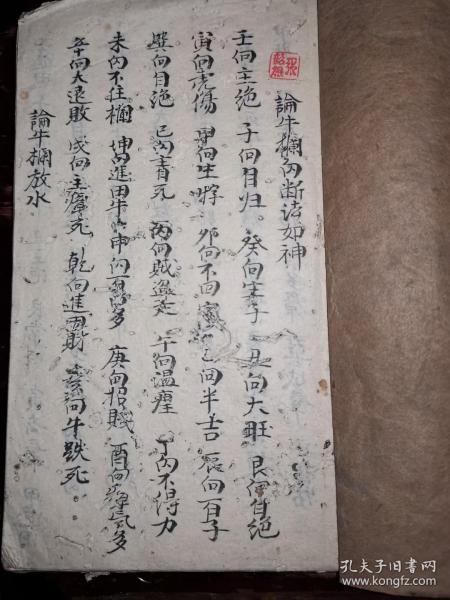 論牛欄向断诀如神
壬向主絶 子向自归 癸向妻子 丑向大旺 艮向自绝
寅向虎傷 甲向生 卯向不回 乙向半吉 辰向百子
巽向自绝 巳向主自死 丙向賊盗走 午向温瘟 丁向不得力
未向不住欄 坤向進田牛 申向百 多 庚向招賊 酉向 氣多
辛向大退敗 戌向主瘟死 乾向進財 亥向牛跌死
論牛欄放水
孔夫子旧书网
www.kongfz.com